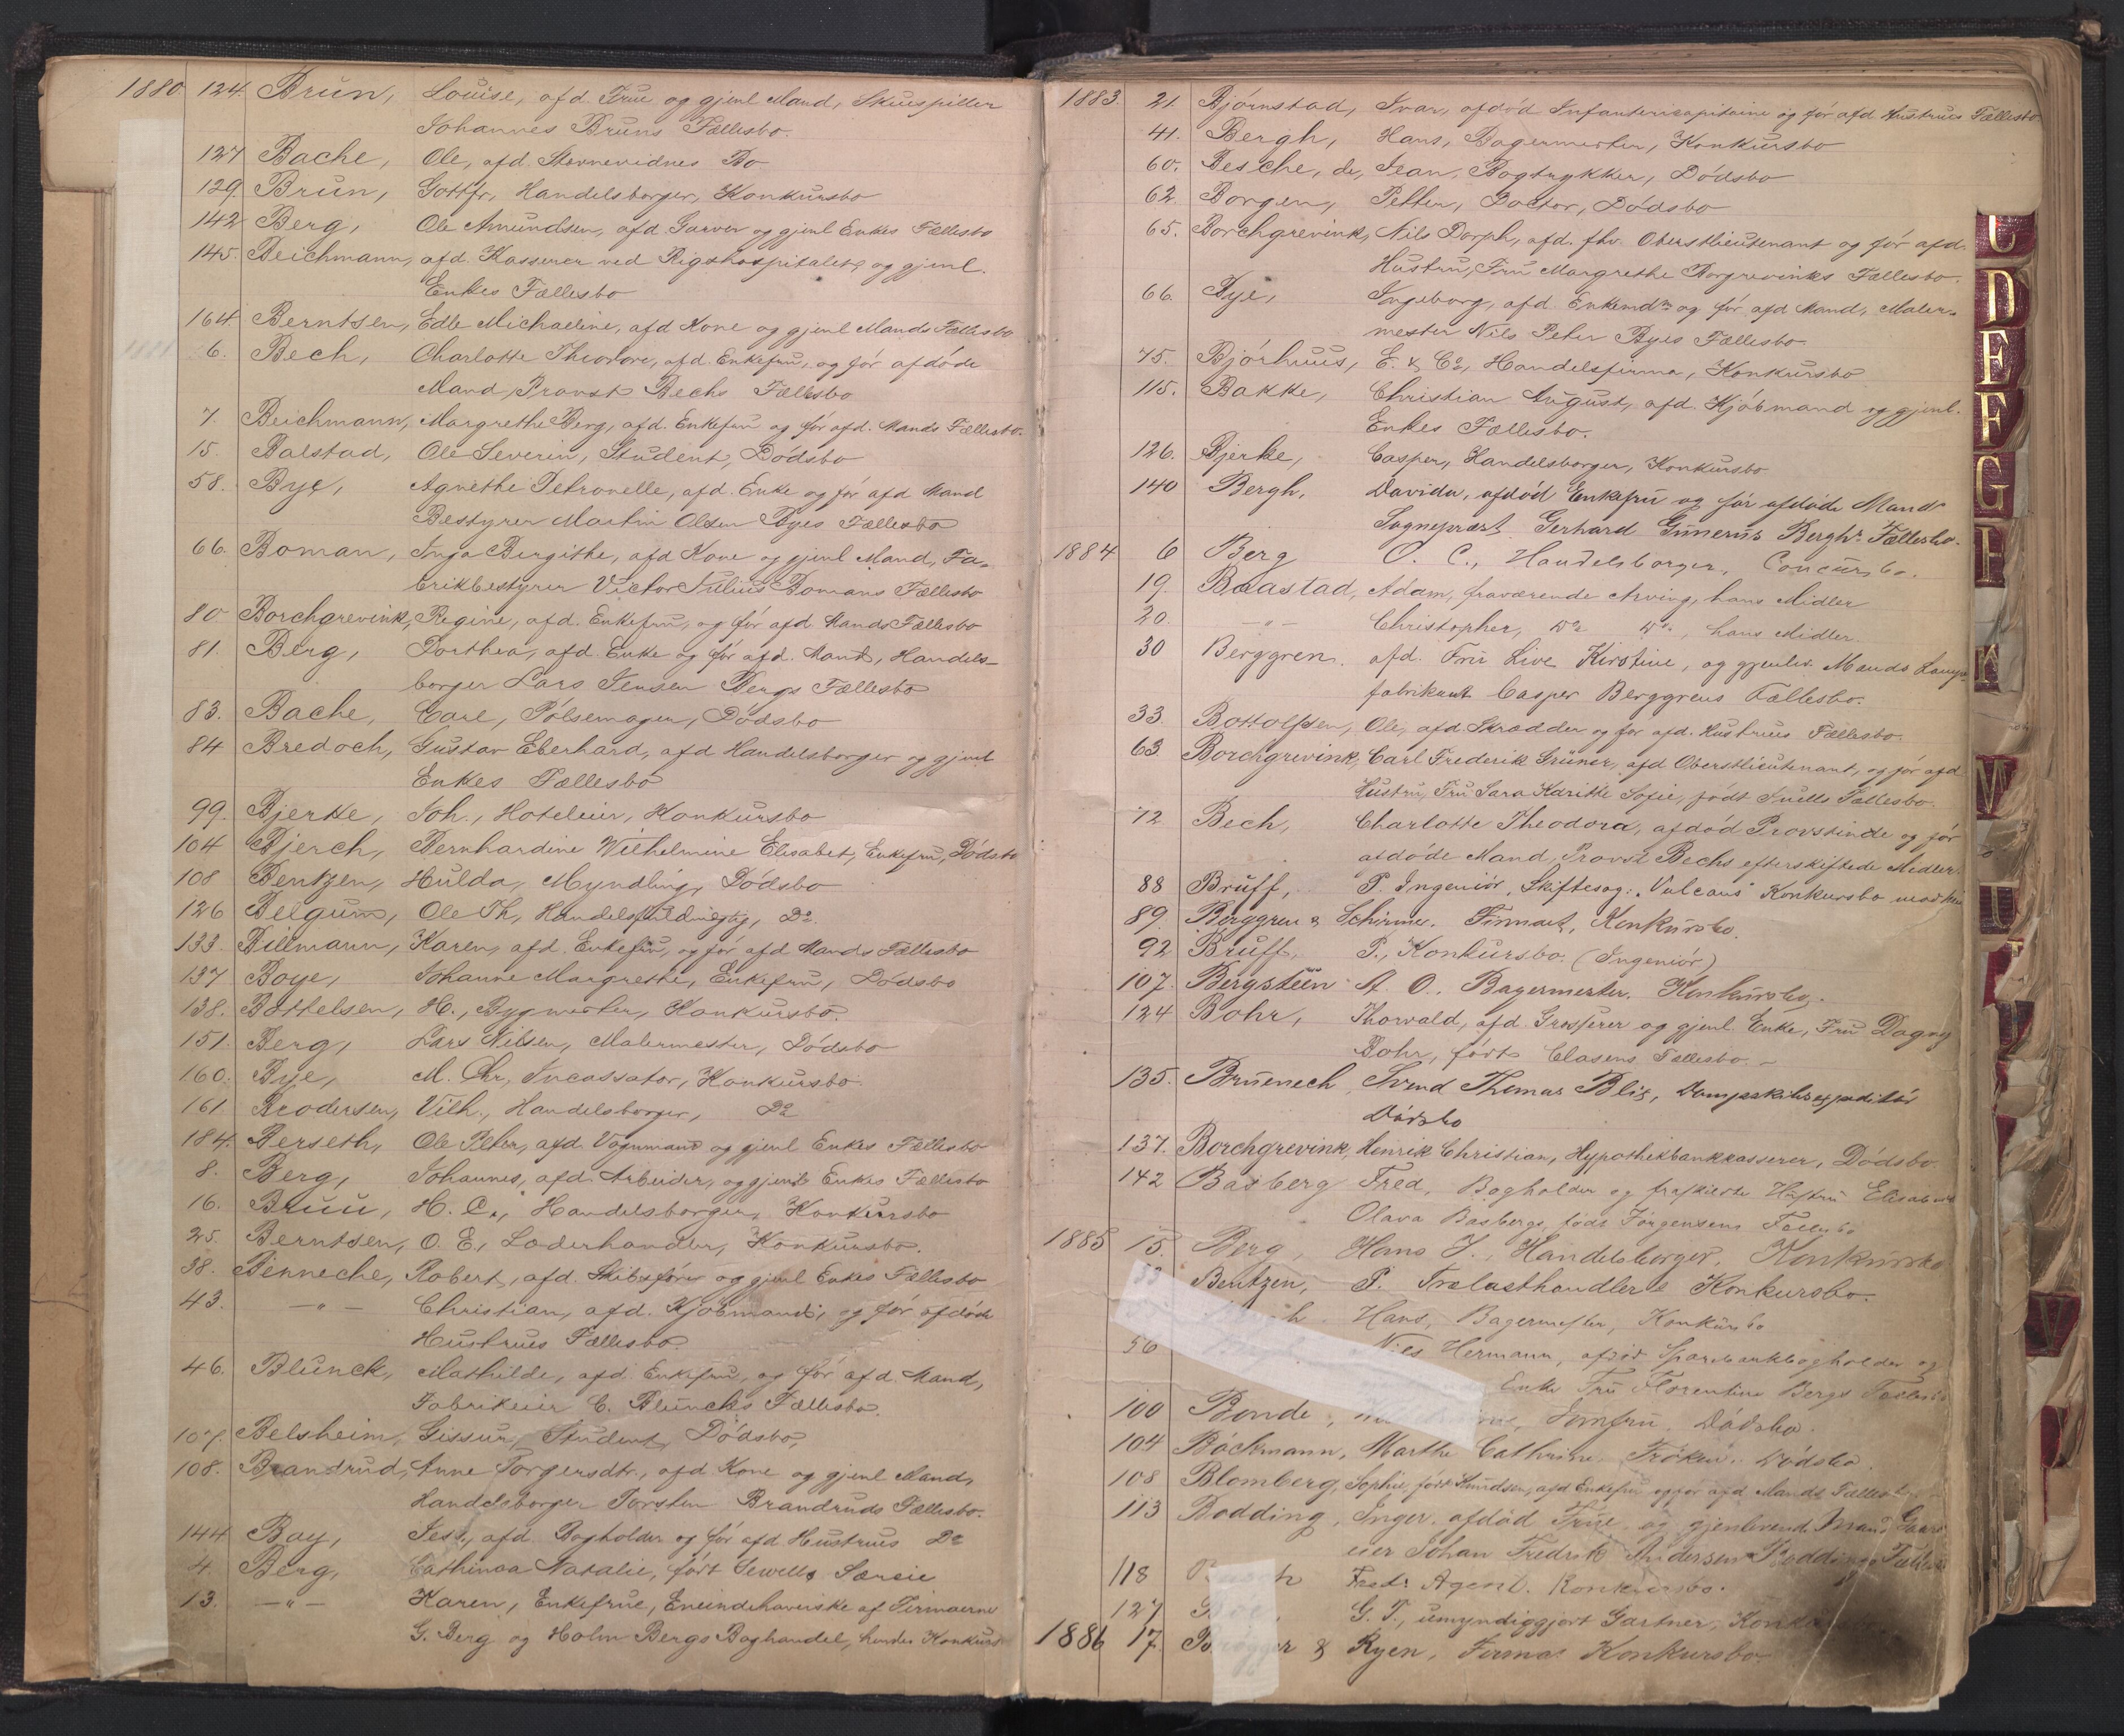 1880 124. Brun, Louise, afd. Frue og gjenl Mand, Skuespiller
Johannes Bruns Fællesbo.
127 Bache, Ole, afd. Bo
129. Brun, Gottfr, Handelsborger, Konkursbo
142 Berg, Ole Amundsen, afd. Garver og gjenl Enkes Fællesbo
145. Beichmann, afd. Kasserer ved Rigshospitalet, og gjenl.
Enkes Fællesbo
164. Berntsen, Edle Michaeline, afd Kone og gjenl Mands Fællesbo
1881 6. Bech, Charlotte Theodore, afd. Enkefru, og før afdøde
Mand, Provst Bechs Fællesbo
7. Beichmann, Margrethe Berg, afd. Enkefru og før afd. Mands Fællesbo.
15. Balstad, Ole Severin, Student, Dødsbo
58. Bye, Agnethe Petronelle, afd. Enke og før afd Mand
Bestyrer Martin Olsen Byes Fællesbo
66. Boman, Inga Birgithe, afd Kone og gjenl Mand, Fa-
brikbestyrer Victor Julius Bomans Fællesbo
80 Borchgrevink, Regine, afd. Enkefru, og før afd. Mands Fællesbo
81. Berg, Dorthea, afd. Enke og før afd. Mand, Handels-
borger Lars Jensen Bergs Fællesbo
83. Bache, Carl, Pølsemager, Dødsbo
84 Bredoch, Gustav Eberhard, afd Handelsborger og gjenl
Enkes Fællesbo
99. Bjerke, Joh., Hoteleier, Konkursbo
104 Bjerch, Bernhardine Wilhelmine Elisabet, Enkefru, Dødsbo
108 Bentzen, Hulda, Myndling, Dødsbo
126 Belgum, Ole Th, Handelsfuldmægtig, Do.
133. Billmann, Karen, afd. Enkefru, og før afd Mands Fællesbo
137 Boye, Johanne Margrethe, Enkefru, Dødsbo
138. Bottelsen, H., Bygmester, Konkursbo.
151. Berg, Lars Nilsen, Malermester, Dødsbo
160. Bye, M. Chr, Incassator, Konkursbo.
161 Brodersen, Vilh., Handelsborger, Do
184. Berseth, Ole Peter, afd. Vognmand og gjenl Enkes Fællesbo
8. Berg, Johannes, afd. Arbeider, og gjenl Enkes Fællesbo
16. Bruu, H. C., Handelsborger, Konkursbo
25. Berntsen, O. E, Læderhandler, Konkursbo.
38. Benneche, Robert, afd. Skibsfører og gjenl Enkes Fællesbo
43. —"— Christian, afd. Kjøbmand, og før afdøde
Hustrues Fællesbo
46. Blunck, Mathilde, afd. Enkefru, og før afd. Mand,
Fabrikeier C. Bluncks Fællesbo.
107. Belsheim, Gissur, Student, Dødsbo,
108. Brandrud, Anne Torgersdtr., afd Kone og gjenl Mand,
Handelsborger Torsten Brandruds Fællesbo.
144 Bay, Jess, afd. Bogholder og før afd Hustrus Do
4. Berg, Cathinca Natalie, født Sewells Særeie
13. —"— Karen, Enkefrue, Eneindehaverske af Firmaerne
G. Berg og Holm Bergs Boghandel, hendes Konkurs
1883. 21. Bjørnstad, Ivar, afdød Infantericapitaine og før afd Hustrues Fællesbo
41. Bergh, Hans, Bagermester, Konkursbo
60. Besche, de, Jean, Bogtrykker, Dødsbo
62. Borgen, Petter, Doctor, Dødsbo
65. Borchgrevink, Nils Dorph, afd. fhv. Oberstlieutenant og før afd.
Hustru, Fru Margrethe Borgrevinks Fællesbo.
66. Bye, Ingeborg, afd. Enkemdm og før afd Mand, Maler-
mester Nils Peter Byes Fællesbo.
75. Bjørhuus, E. & Co, Handelsfirma, Konkursbo
115. Bakke, Christian August, afd. Kjøbmand og gjenl.
Enkes Fællesbo.
126. Bjerke, Casper, Handelsborger, Konkursbo
140 Bergh, Davida, afdød Enkefru og før afdøde Mand
Sognepræst Gerhard Gunerus Berghs Fællesbo.
1884 6 Berg O. C., Handelsborger, Concursbo.
19. Baastad, Adam, fraværende Arving, hans Midler
20. —"— Christopher, Do Do, hans Midler.
30 Berggren, afd. Fru Live Kirstine, og gjenlev. Mands Lampe-
fabrikant Casper Berggrens Fællesbo.
33. Bottolfsen, Ole, afd. Skrædder og før afd. Hustrues Fællesbo.
63. Borchgrevink, Carl Frederik Grüner, afd Oberstlieutenant, og før afd
Hustru, Fru Sara Sofie, født Fællesbo.
72 Bech, Charlotte Theodora, afdød Provstinde og før
afdøde Mand, Provst Bechs efterskiftede Midler.
88 Bruff, P. Ingeniør, Skiftesag: "Vulcans" Konkursbo mod
89. Berggren & Schirmer, Firmaet, Konkursbo.
92 Bruff, P., Konkursbo. (Ingeniør)
107. Bergsteen A. O., Bagermester, Konkursbo.
124 Bohr, Thorvald, afd. Grosserer og gjenl. Enke, Fru Dagny
Bohr, født Clasens Fællesbo.
135. Bruenech, Svend Thomas Blix, Dampskibsexpeditør
Dødsbo
137. Borchgrevink, Henrik Christian, Hypothekbankkasserer, Dødsbo.
142 Basberg Fred, Bogholder og fraskilte Hustru Elisabeth
Olava Basbergs, født Jørgensens Fællesbo
1885 15. Berg, Hans J., Handelsborger, Konkursbo
33 Bentzen, P. Trælasthandler Konkursbo.
Hans, Bagermester, Konkursbo
56 Niels Hermann, afdød Sparebankbogholder og
Enke Fru Florentine Bergs Fællesbo
100 Bonde, Jomfru, Dødsbo.
104 Bøckmann, Marthe Cathrine, Frøken, Dødsbo.
108 Blomberg, Sophie, født Knudsen, afd Enkefru og før afd Mands Fællesbo
113 Bodding, Inger, afdød Frue, og gjenlevend. Mand Gaard-
eier Johan Fredrik Andersen Boddings Fællesbo
118 Fredr Agent. Konkursbo.
127 G. T., umyndiggjort Gartner,
1886 17. & Ryen, Firma Konkursbo.
C
D
E
F
G
K
M
U
V